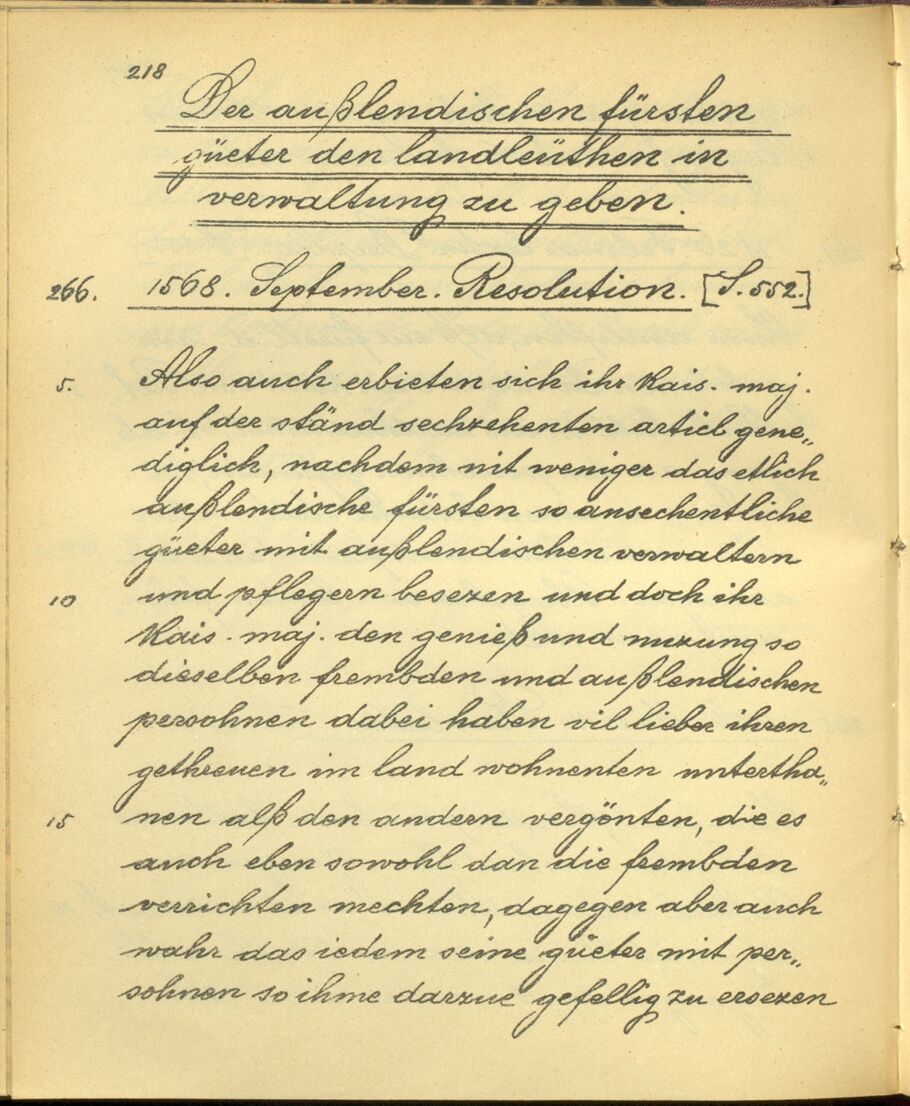 218
Der außlendischen fürsten
güeter den landleüthen in
verwaltung zu geben.
266. 1568. September. Resolution. [S. 552.]
5. Also auch erbieten sich ihr Kais. maj.
auf der ständ sechzehenten articl gene„
diglich, nachdem nit weniger das etlich
außlendische fürsten so ansechentliche
güeter mit außlendischen verwaltern
10 und pflegern besezen und doch ihr
Kais. maj. den genieß und nuzung so
dieselben frembden und außlendischen
persohnen dabei haben vil lieber ihren
gethreuen im land wohnenten untertha„
15 nen alß den andern vergönten, die es
auch eben sowohl dan die frembden
verrichten mechten, dagegen aber auch
wahr das iedem seine güeter mit per„
sohnen so ihme darzue gefellig zu ersezen